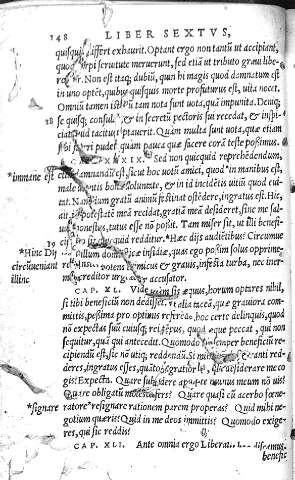 148 LIBER SEXTVS,
quisquis differt exhaurit. Optant ergo non tantū ut accipiant,
turpi seruitute meruerunt, sed etiā ut tributo graui libe-
Non est itaq; dubiū, quin hi magis quod damnatum est
in uno optēt, quibus quisquis morte profuturus est, uita nocet.
Omniū tamen istorū tam nota sunt uota, quā impunita. Deniq;
38 se quisq; consulat, & in secretū pectoris sui recedat, & inspi-
ciat quid tacitus optauerit. Quàm multa sunt uota, quæ etiam
sibi fateri pudet quàm pauca quæ facere corā teste possimus.
CAP. XXXIX. Sed non quicquid reprehēdendum,
*immane est damnandū est, sicut hoc uotū amici, quod in manibus est,
male utentis bona uoluntate, & in id incidētis uitiū quod eui-
tat. Nam dum gratū animū festinat ostēdere, ingratus est. Hic
ait, in potestatē meā recidat, gratiā meā desideret, sine me sal-
uus, honestus, tutus esse nō possit. Tam miser sit, ut illi benefi-
39 quicquid redditur. Hæc dijs audiētibus: Circumue
*Hinc Dij domesticæ insidiæ, quas ego possim solus opprime-
circūueniant potens inimicus & grauis, infesta turba, nec iner-
illinc creditor urgeat accusator.
CAP. XL. Vide quàm sis æquus, horum optares nihil,
si tibi beneficiū non dedisset. Vt alia taceā, quæ grauiora com-
mittis, pessima pro optimis referēdo, hoc certe delinquis, quod
nō expectas suū cuiusq; rei tēpus, quod æque peccat, qui non
sequitur, quā qui antecedit. Quomodo semper beneficiū re-
cipiendū est, sic nō utiq; reddendū. Si mihi nō desiderāti red-
deres, ingratus esses, quāto ingratior es, qui desiderare me co-
gis? Expecta. Quare subsidere apud te munus meum nō uis?
Quare obligatū moleste fers? Quare quasi cū acerbo fœne-
*signare ratore *resignare rationem parem properas? Quid mihi ne-
gotium quæris? Quid in me deos immittis? Quomodo exige-
res, qui sic reddis?
CAP. XLI. Ante omnia ergo Liberalis discamus
benefi-